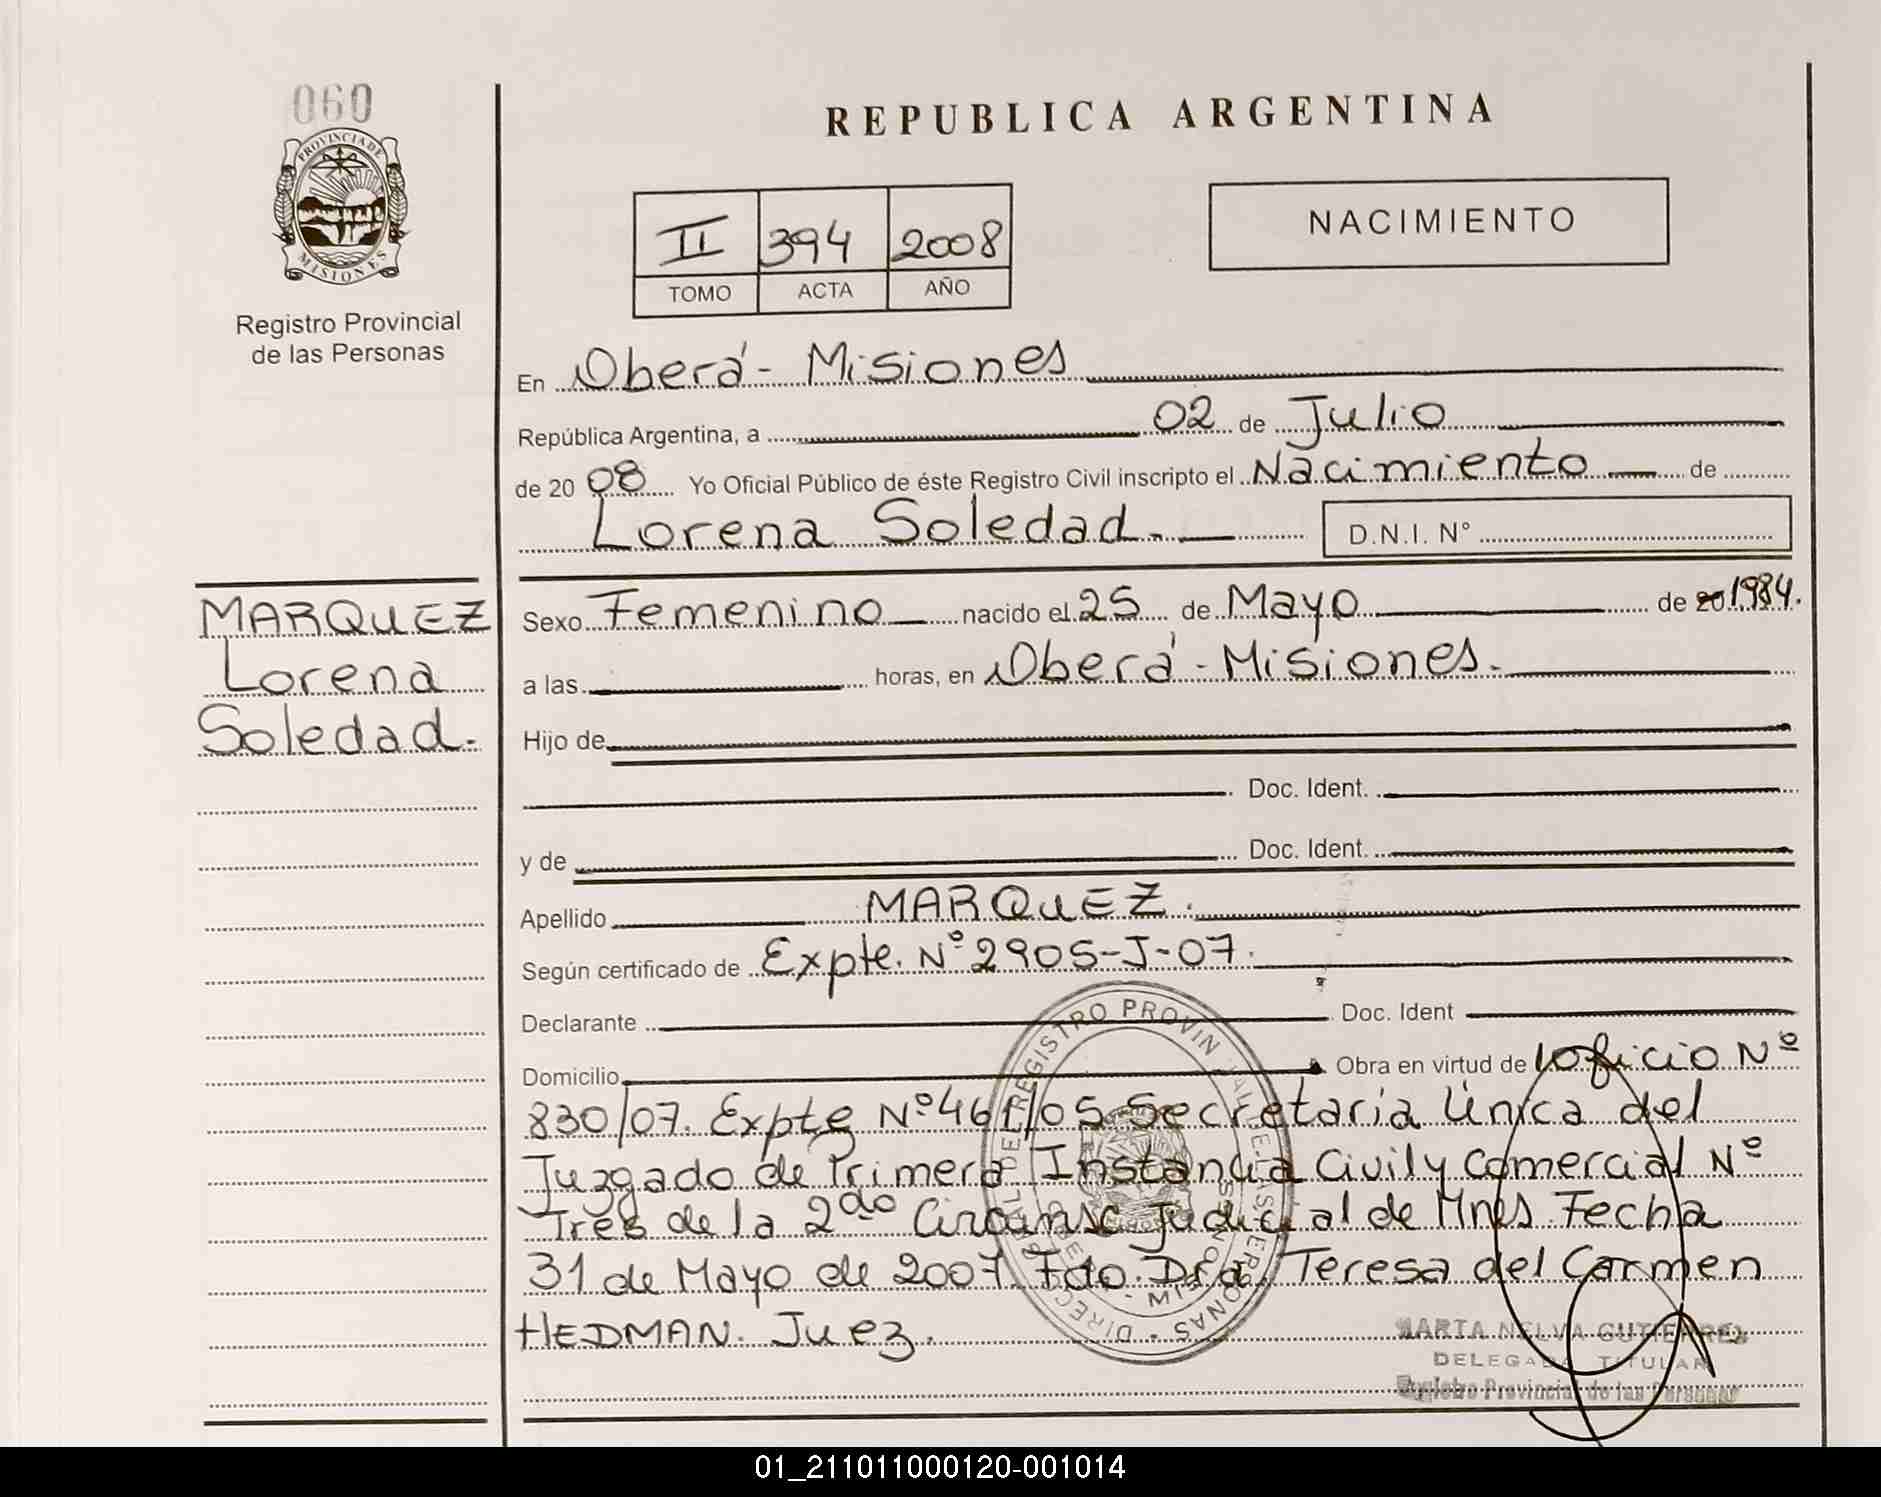 060
PROVINCIA DE
MISIONES
Registro Provincial
de las Personas
REPUBLICA ARGENTINA
II 394 2008
TOMO ACTA AÑO
NACIMIENTO
En Oberá - Misiones
República Argentina, a 02 de Julio
de 20 08 Yo Oficial Público de éste Registro Civil inscripto el Nacimiento de
Lorena Soledad.
D.N.I. N°
MARQUEZ
Lorena
Soledad.
Sexo Femenino nacido el 25 de Mayo de 20 1984.
a las horas, en Oberá - Misiones.
Hijo de
Doc. Ident.
y de Doc. Ident.
Apellido MARQUEZ.
Según certificado de Expte. N° 2905-J-07.
Declarante Doc. Ident
Domicilio Obra en virtud de oficio Nº
830/07. Expte Nº 461/05 Secretaría Única del
Juzgado de Primera Instancia Civil y Comercial Nº
Tres de la 2do Circunsc Judicial de Mnes. Fecha
31 de Mayo de 2007. Fdo. Dra. Teresa del Carmen
HEDMAN. Juez.
MARTA NELVA GUTIERREZ
DELEGADA TITULAR
Registro Provincial de las Personas
01_211011000120-001014